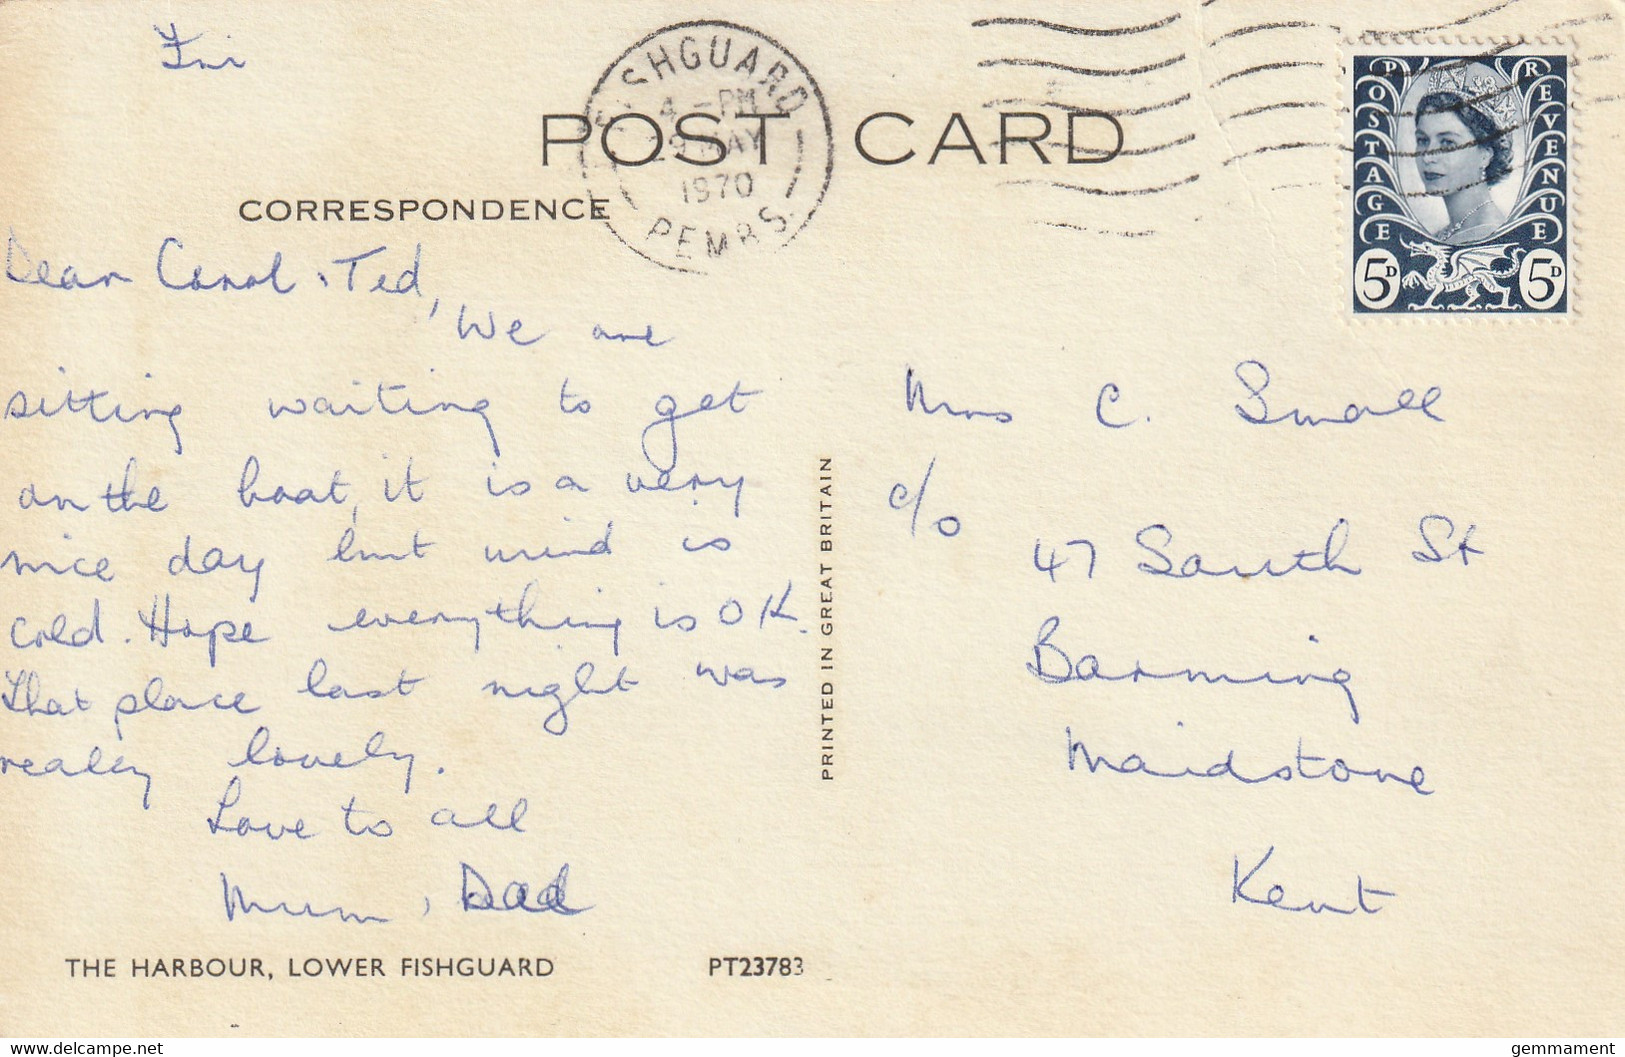 Fri
FISHGUARD
4 - PM
MAY
1970
PEMBS.
POST CARD
CORRESPONDENCE
POSTAGE REVENUE
5D 5D
Dear Carol & Ted,
We are
sitting waiting to get
on the boat, it is a very
nice day but wind is
cold. Hope everything is OK.
That place last night was
really lovely.
Love to all
Mum & Dad
THE HARBOUR, LOWER FISHGUARD PT23783
PRINTED IN GREAT BRITAIN
Mrs C. Small
c/o
47 South St
Barming
Maidstone
Kent
www.delcampe.net
gemmament